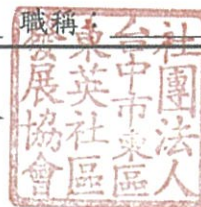 職稱：
社團法人
台中市東區
東英社區
發展協會